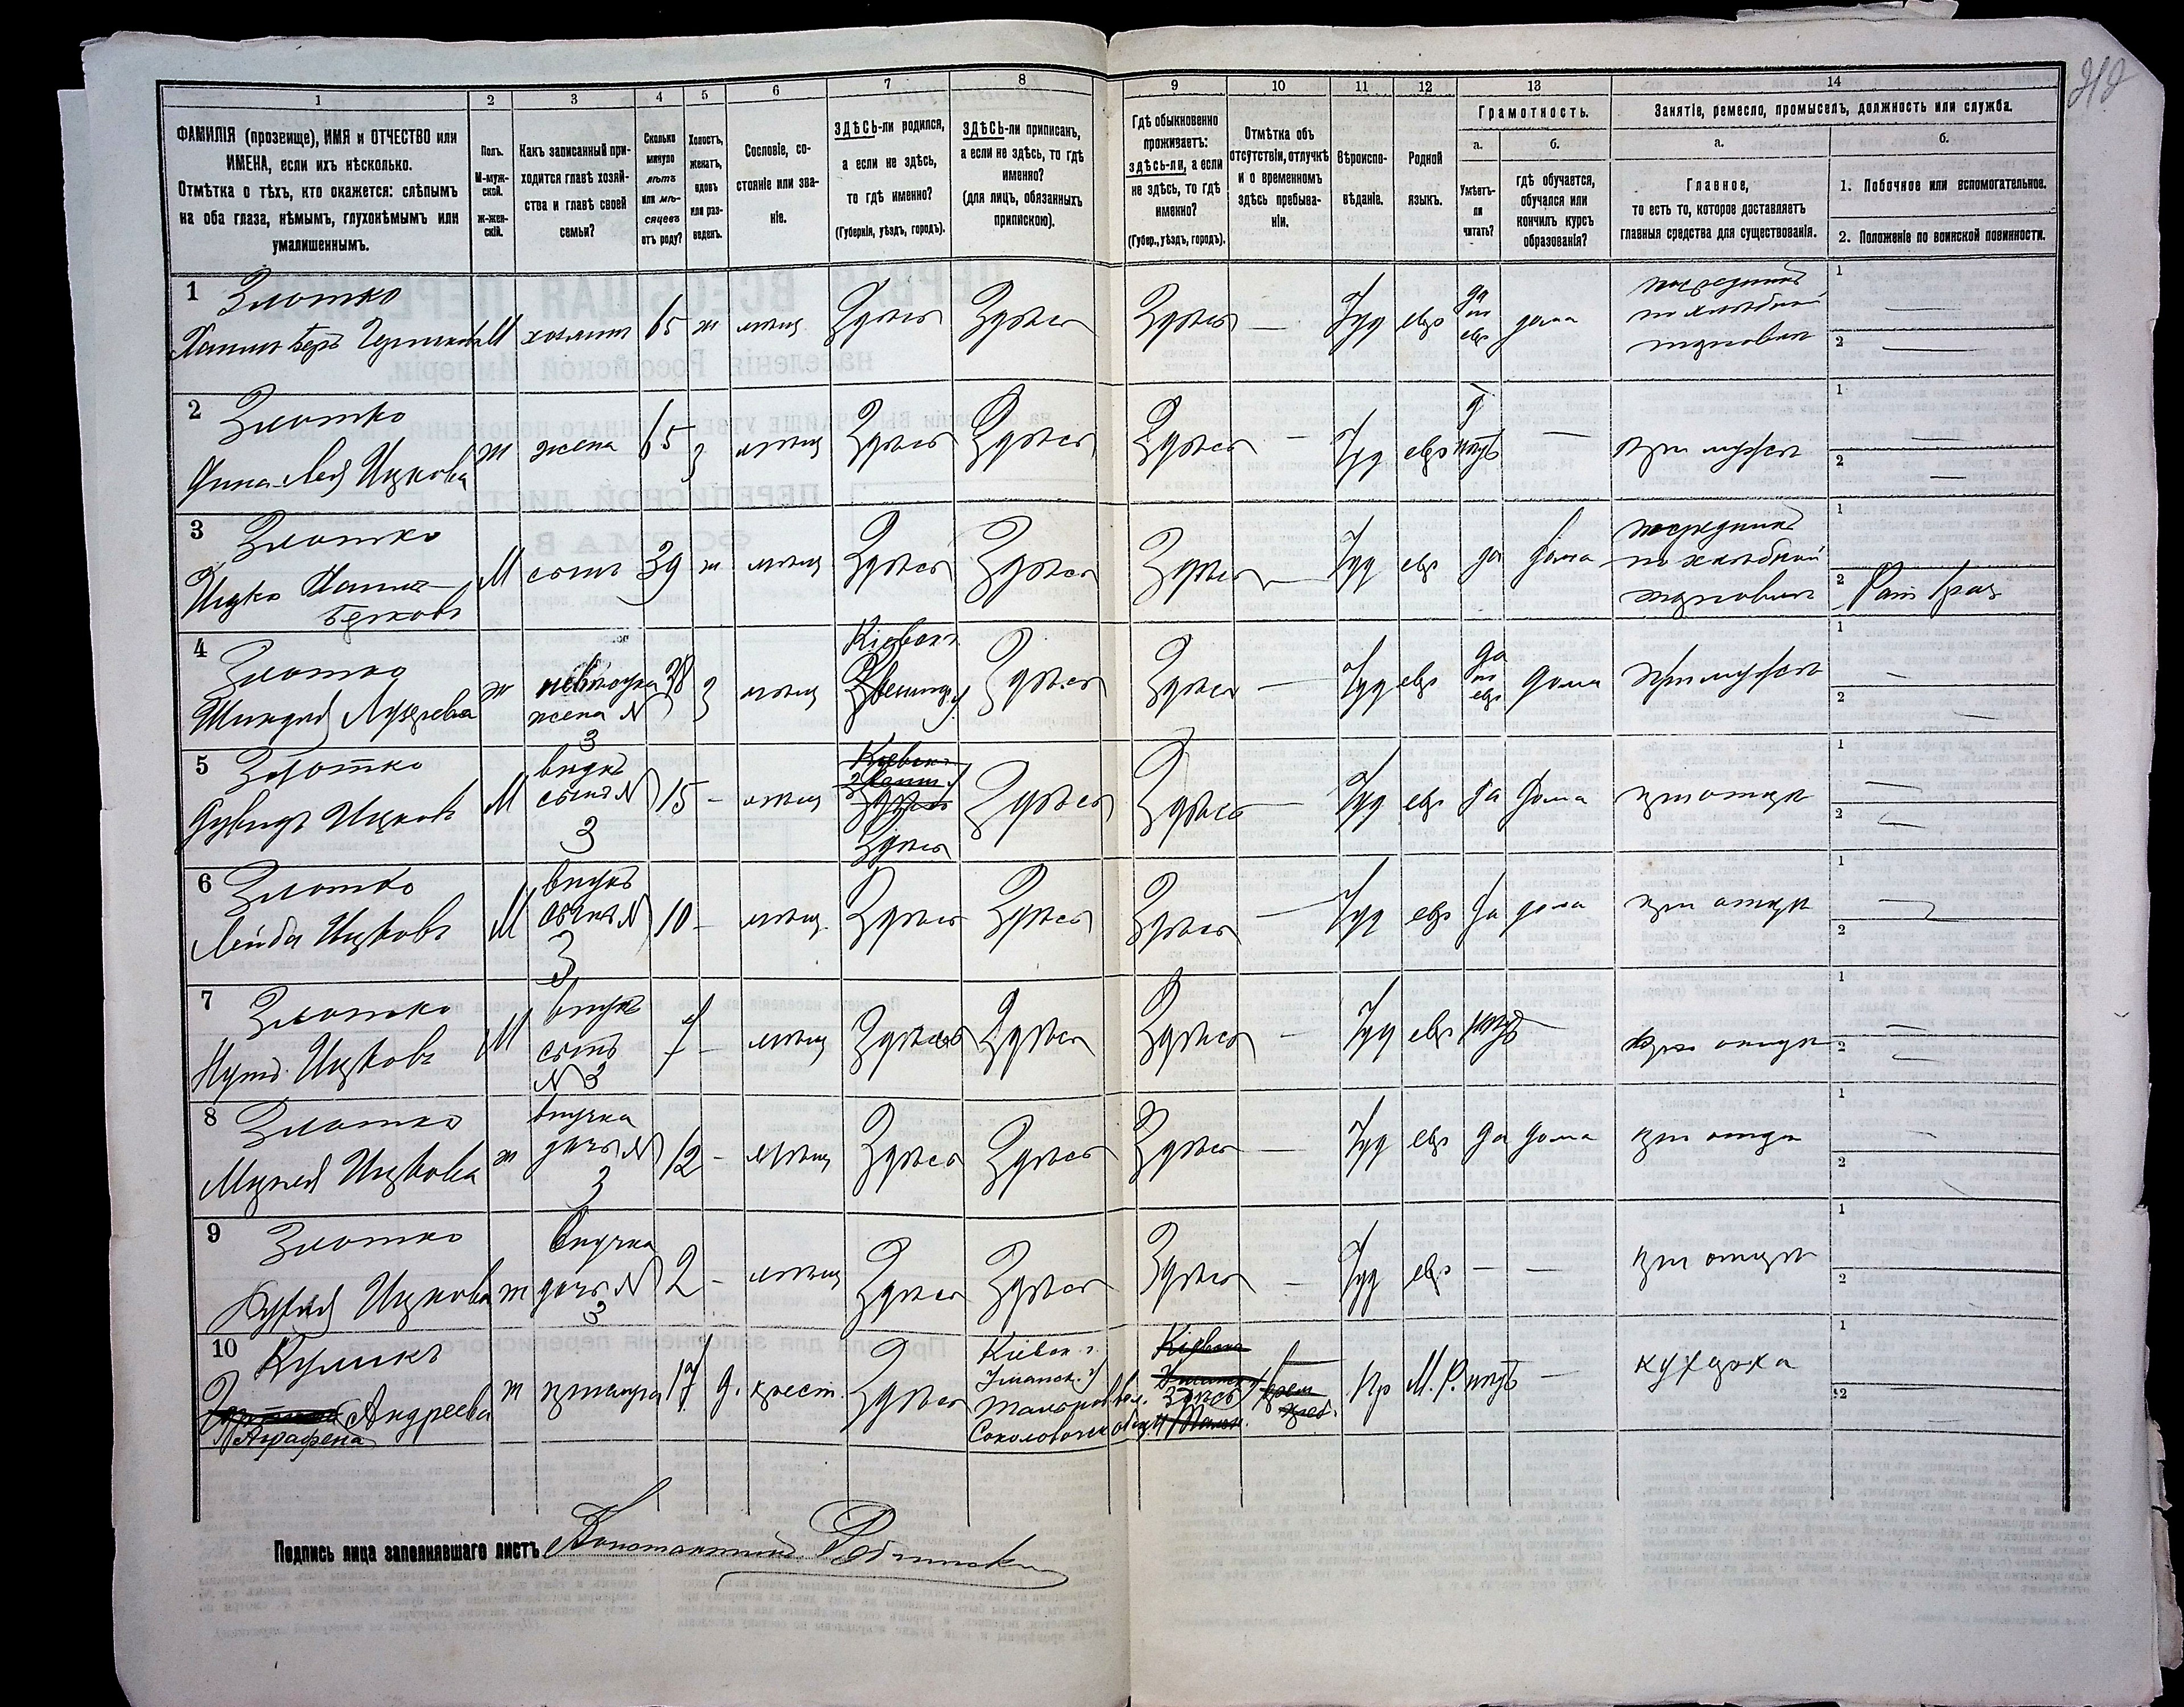 212
1 2 3 4 5 6 7 8 9 10 11 12 13 14
ФАМИЛІЯ (прозвище), ИМЯ и ОТЧЕСТВО или
ИМЕНА, если ихъ нѣсколько.
Отмѣтка о тѣхъ, кто окажется: слѣпымъ
на оба глаза, нѣмымъ, глухонѣмымъ или
умалишеннымъ.
Полъ.
М-муж-
ской.
Ж-жен-
скій.
Какъ записанный при-
ходится главѣ хозяй-
ства и главѣ своей
семьи?
Сколько
минуло
лѣтъ
или мѣ-
сяцевъ
отъ роду?
Холостъ,
женатъ,
вдовъ
или раз-
веденъ.
Сословіе, со-
стояніе или зва-
ніе.
ЗДѢСЬ-ли родился,
а если не здѣсь,
то гдѣ именно?
(Губернія, уѣздъ, городъ).
ЗДѢСЬ-ли приписанъ,
а если не здѣсь, то гдѣ
именно?
(для лицъ, обязанныхъ
припискою).
Гдѣ обыкновенно
проживаетъ:
здѣсь-ли, а если
не здѣсь, то гдѣ
именно?
(Губер., уѣздъ, городъ).
Отмѣтка объ
отсутствіи, отлучкѣ
и о временномъ
здѣсь пребыва-
ніи.
Вѣроиспо-
вѣданіе.
Родной
языкъ.
Грамотность.
а.
Умѣетъ-
ли
читать?
б.
гдѣ обучается,
обучался или
кончилъ курсъ
образованія?
Занятіе, ремесло, промыселъ, должность или служба.
а.
Главное,
то есть то, которое доставляетъ
главныя средства для существованія.
б.
1. Побочное или вспомогательное.
2. Положеніе по воинской повинности.
1 Злотко
Хаимъ Беръ М хозяинъ 65 ж мѣщ Здѣсь Здѣсь Здѣсь — Іуд евр да по евр дома посредникъ по хлѣбной торговли
1 —
2 —
2 Злотко
Лея Ицкова ж жена 65 з мѣщ Здѣсь Здѣсь Здѣсь — Іуд евр нѣтъ — при мужѣ
1 —
2 —
3 Злотко
Ицко Хаимъ-
Берковъ М сынъ 39 ж мѣщ Здѣсь Здѣсь Здѣсь — Іуд евр да дома посредникъ по хлѣбной торговли
1
2
4 Злотко
ж невѣстка жена N 3 38 з мѣщ Кіевск. Звениг. у. Здѣсь Здѣсь — Іуд евр да по евр дома при мужѣ
1 —
2 —
5 Злотко
Дувидъ Ицковъ М внукъ сынъ N 3 15 — мѣщ Здѣсь Здѣсь Здѣсь — Іуд евр да дома при отцѣ
1 —
2 —
6 Злотко
Лейба Ицковъ М внукъ сынъ N 3 10 — мѣщ. Здѣсь Здѣсь Здѣсь — Іуд евр да дома при отцѣ
1 —
2
7 Злотко
Ицковъ М внукъ сынъ N 3 7 — мѣщ Здѣсь Здѣсь Здѣсь — Іуд евр нѣтъ — при отцѣ
1 —
2 —
8 Злотко
Ицкова ж внучка дочь N 3 12 — мѣщ Здѣсь Здѣсь Здѣсь — Іуд евр да дома при отцѣ
1 —
2 —
9 Злотко
Ицкова ж внучка дочь N 3 2 — мѣщ Здѣсь Здѣсь Здѣсь — Іуд евр — — при отцѣ
1 —
2 —
10 Куликъ
Андреева
Аграфена ж прислуга 17 д. крест. Здѣсь Кіевск. г. Уманск. у. Здѣсь Пр М.Р. нѣтъ — кухарка
1
2 —
Подпись лица заполнявшаго листъ Константинъ